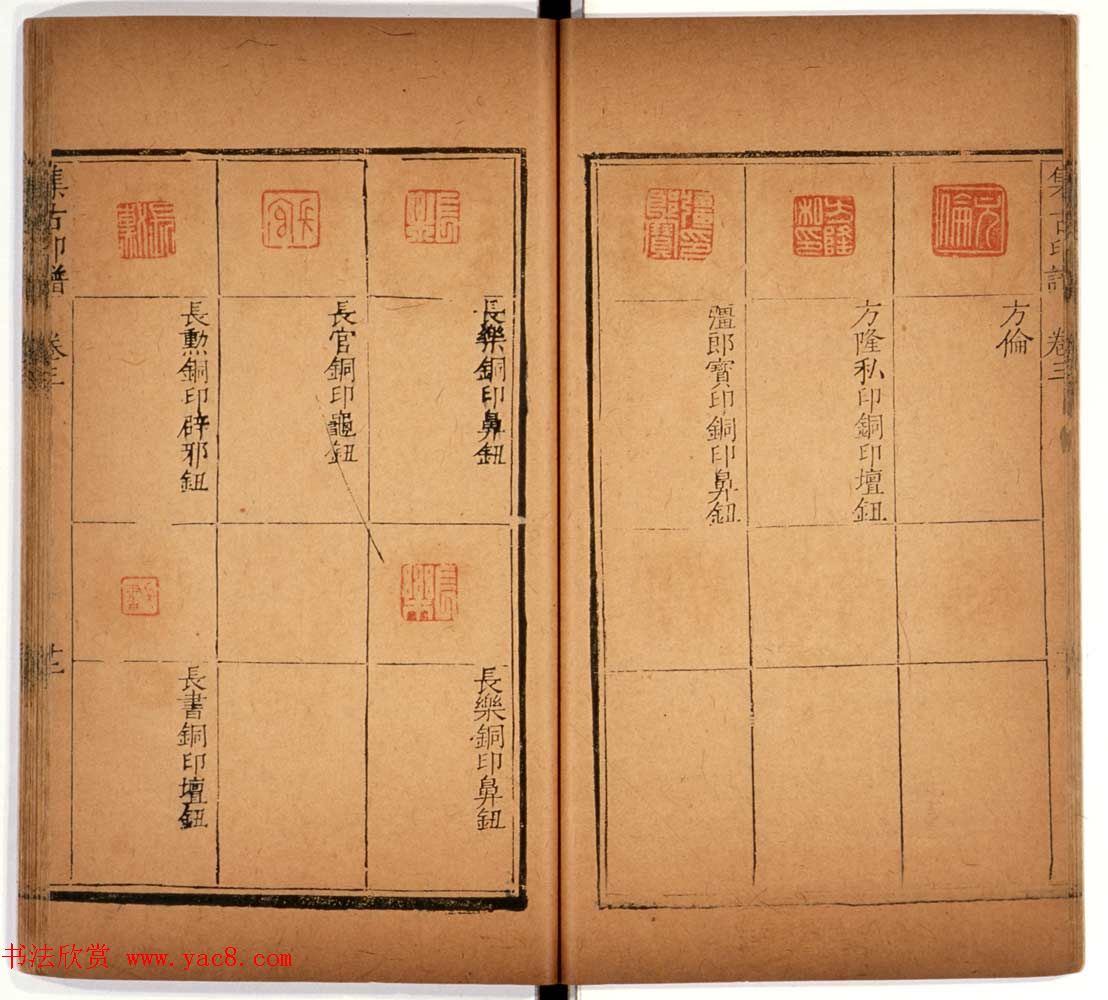 集古印譜 卷三
方倫
方隆私印銅印壇鈕
彊郎寶印銅印鼻鈕
長樂銅印鼻鈕
長樂銅印鼻鈕
長官銅印龜鈕
長勲銅印辟邪鈕
長書銅印壇鈕
集古印譜 卷三
书法欣赏 www.yac8.com